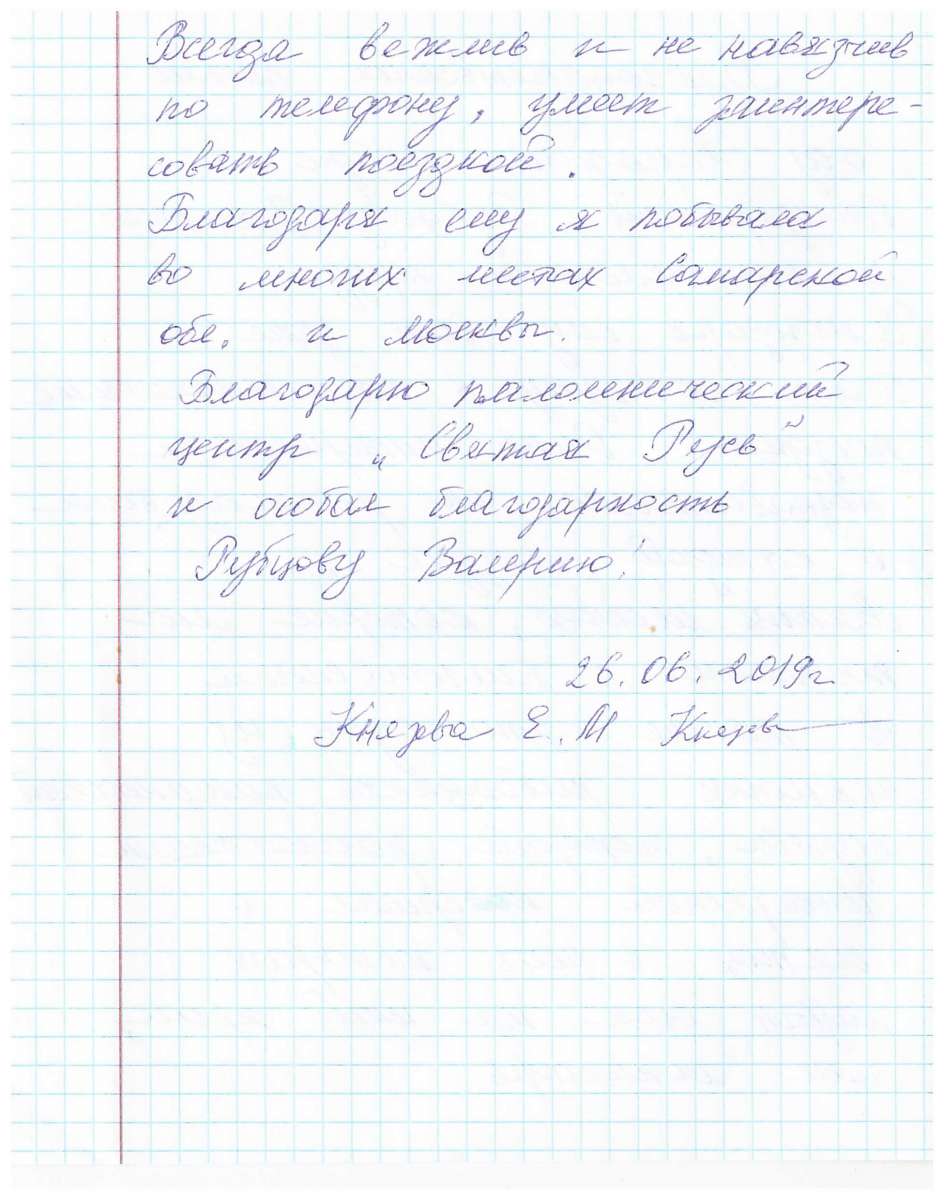 Всегда вежлив и не навязчив
по телефону, умеет заинтере-
совать поездкой.
Благодаря ему я побывала
во многих местах Самарской
обл. и Москвы.
Благодарю паломнический
центр „Святая Русь"
и особая благодарность
Рубцову Валерию!
26.06.2019г.
Князева Е.М Князев